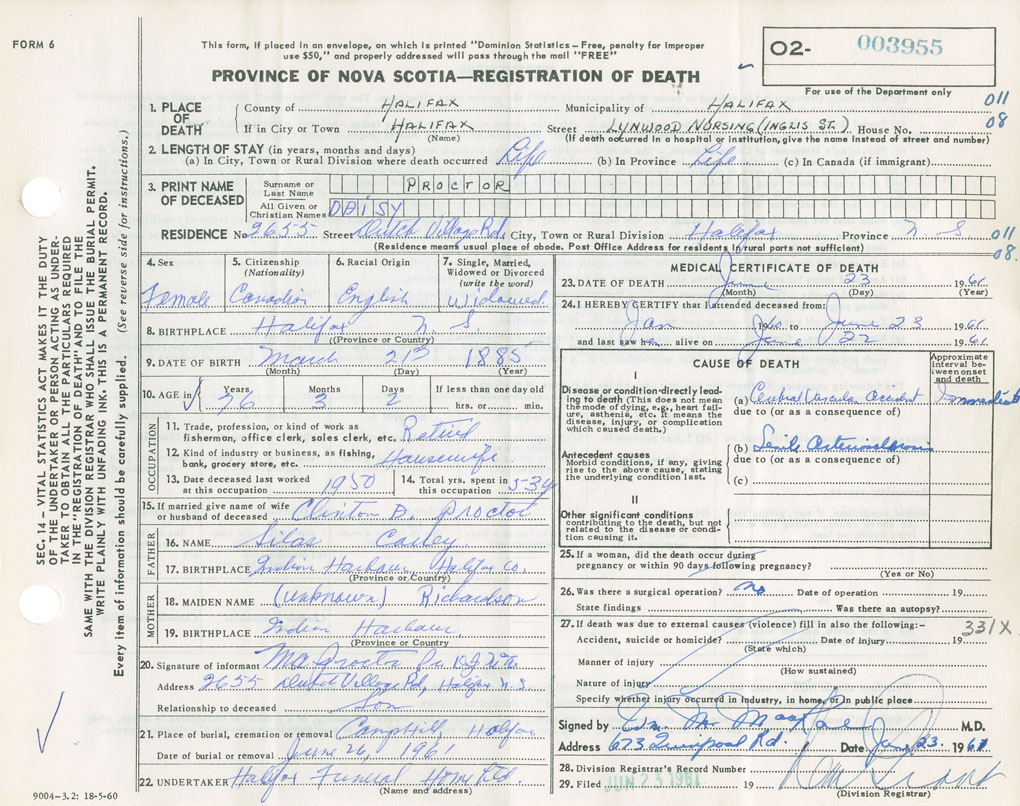 FORM 6
This form, if placed in an envelope, on which is printed "Dominion Statistics – Free, penalty for improper
use $50," and properly addressed will pass through the mail "FREE"
PROVINCE OF NOVA SCOTIA—REGISTRATION OF DEATH
O2- 003955
For use of the Department only
011
08
1. PLACE OF DEATH
County of HALIFAX Municipality of HALIFAX
If in City or Town HALIFAX Street LYNWOOD NURSING (INGLIS ST.) House No.
(Name) (If death occurred in a hospital or institution, give the name instead of street and number)
2. LENGTH OF STAY (in years, months and days)
(a) In City, Town or Rural Division where death occurred Life (b) In Province Life (c) In Canada (if immigrant)
3. PRINT NAME OF DECEASED
Surname or Last Name PROCTOR
All Given or Christian Names DAISY
RESIDENCE No 2655 Street Dutch Village Rd. City, Town or Rural Division Halifax Province N S
011
08.
(Residence means usual place of abode. Post Office Address for residents in rural parts not sufficient)
4. Sex Female
5. Citizenship (Nationality) Canadian
6. Racial Origin English
7. Single, Married, Widowed or Divorced (write the word) Widowed
8. BIRTHPLACE Halifax N. S.
(Province or Country)
9. DATE OF BIRTH March 21 1885
(Month) (Day) (Year)
10. AGE in Years 76 Months 3 Days 2 If less than one day old hrs. or min.
OCCUPATION
11. Trade, profession, or kind of work as fisherman, office clerk, sales clerk, etc. Retired
12. Kind of industry or business, as fishing, bank, grocery store, etc. Housewife
13. Date deceased last worked at this occupation 1950
14. Total yrs. spent in this occupation
15. If married give name of wife or husband of deceased Clinton D. Proctor
FATHER
16. NAME Silas
17. BIRTHPLACE Indian Harbour Halifax Co.
(Province or Country)
MOTHER
18. MAIDEN NAME (unknown) Richardson
19. BIRTHPLACE Indian Harbour.
(Province or Country)
20. Signature of informant
Address 2655 Dutch Village Rd, Halifax N.S.
Relationship to deceased Son
21. Place of burial, cremation or removal Camphill, Halifax
Date of burial or removal June 26, 1961
22. UNDERTAKER Halifax Funeral Home Ltd.
(Name and address)
9004-3.2: 18-5-60
MEDICAL CERTIFICATE OF DEATH
23. DATE OF DEATH June 23 1961
(Month) (Day) (Year)
24. I HEREBY CERTIFY that I attended deceased from:
Jan 1960 to June 23 1961
and last saw her alive on June 22 1961
CAUSE OF DEATH
Approximate interval between onset and death
I
Disease or condition directly leading to death (This does not mean the mode of dying, e.g., heart failure, asthenia, etc. It means the disease, injury, or complication which caused death.)
(a) Cerebral Vascular Accident Immediate
due to (or as a consequence of)
Antecedent causes
Morbid conditions, if any, giving rise to the above cause, stating the underlying condition last.
(b) Senile Arteriosclerosis
due to (or as a consequence of)
(c)
II
Other significant conditions
contributing to the death, but not related to the disease or condition causing it.
25. If a woman, did the death occur during
pregnancy or within 90 days following pregnancy?
(Yes or No)
26. Was there a surgical operation? no Date of operation 19
State findings Was there an autopsy?
27. If death was due to external causes (violence) fill in also the following:-
331X
Accident, suicide or homicide? Date of injury 19
(State which)
Manner of injury
(How sustained)
Nature of injury
Specify whether injury occurred in industry, in home, or in public place
Signed by M.D.
Address 673 Liverpool Rd. Date June 23 1961
28. Division Registrar's Record Number
29. Filed JUN 23 1961 19
(Division Registrar)
SEC. 14 – VITAL STATISTICS ACT MAKES IT THE DUTY
OF THE UNDERTAKER OR PERSON ACTING AS UNDER-
TAKER TO OBTAIN ALL THE PARTICULARS REQUIRED
IN THE "REGISTRATION OF DEATH" AND TO FILE THE
SAME WITH THE DIVISION REGISTRAR WHO SHALL ISSUE THE BURIAL PERMIT.
WRITE PLAINLY WITH UNFADING INK. THIS IS A PERMANENT RECORD.
Every item of information should be carefully supplied. (See reverse side for instructions.)